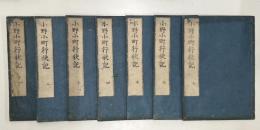 小野小町行状記
小野小町行状記
小野小町行状記
小野小町行状記 四
小野小町行状記
小野小町行状記
小野小町行状記